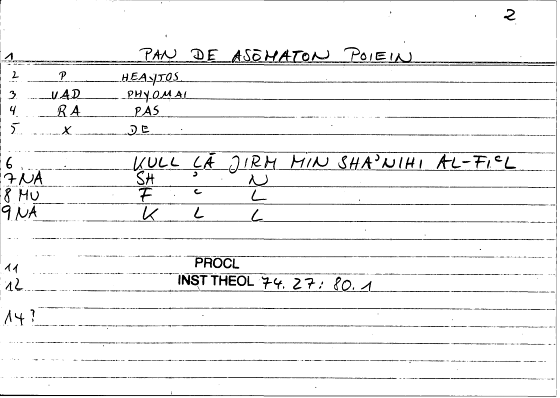 2
1 PAN DE ASŌMATON POIEIN
2 P HEAYTOS
3 VAD PHYOMAI
4 RA PAS
5 X DE
6 KULL LĀ JIRM MIN SHAʾNIHI AL-FIᶜL
7 NA SH ʾ N
8 MU F ᶜ L
9 NA K L L
11 PROCL
12 INST THEOL 74. 27: 80. 1
14?